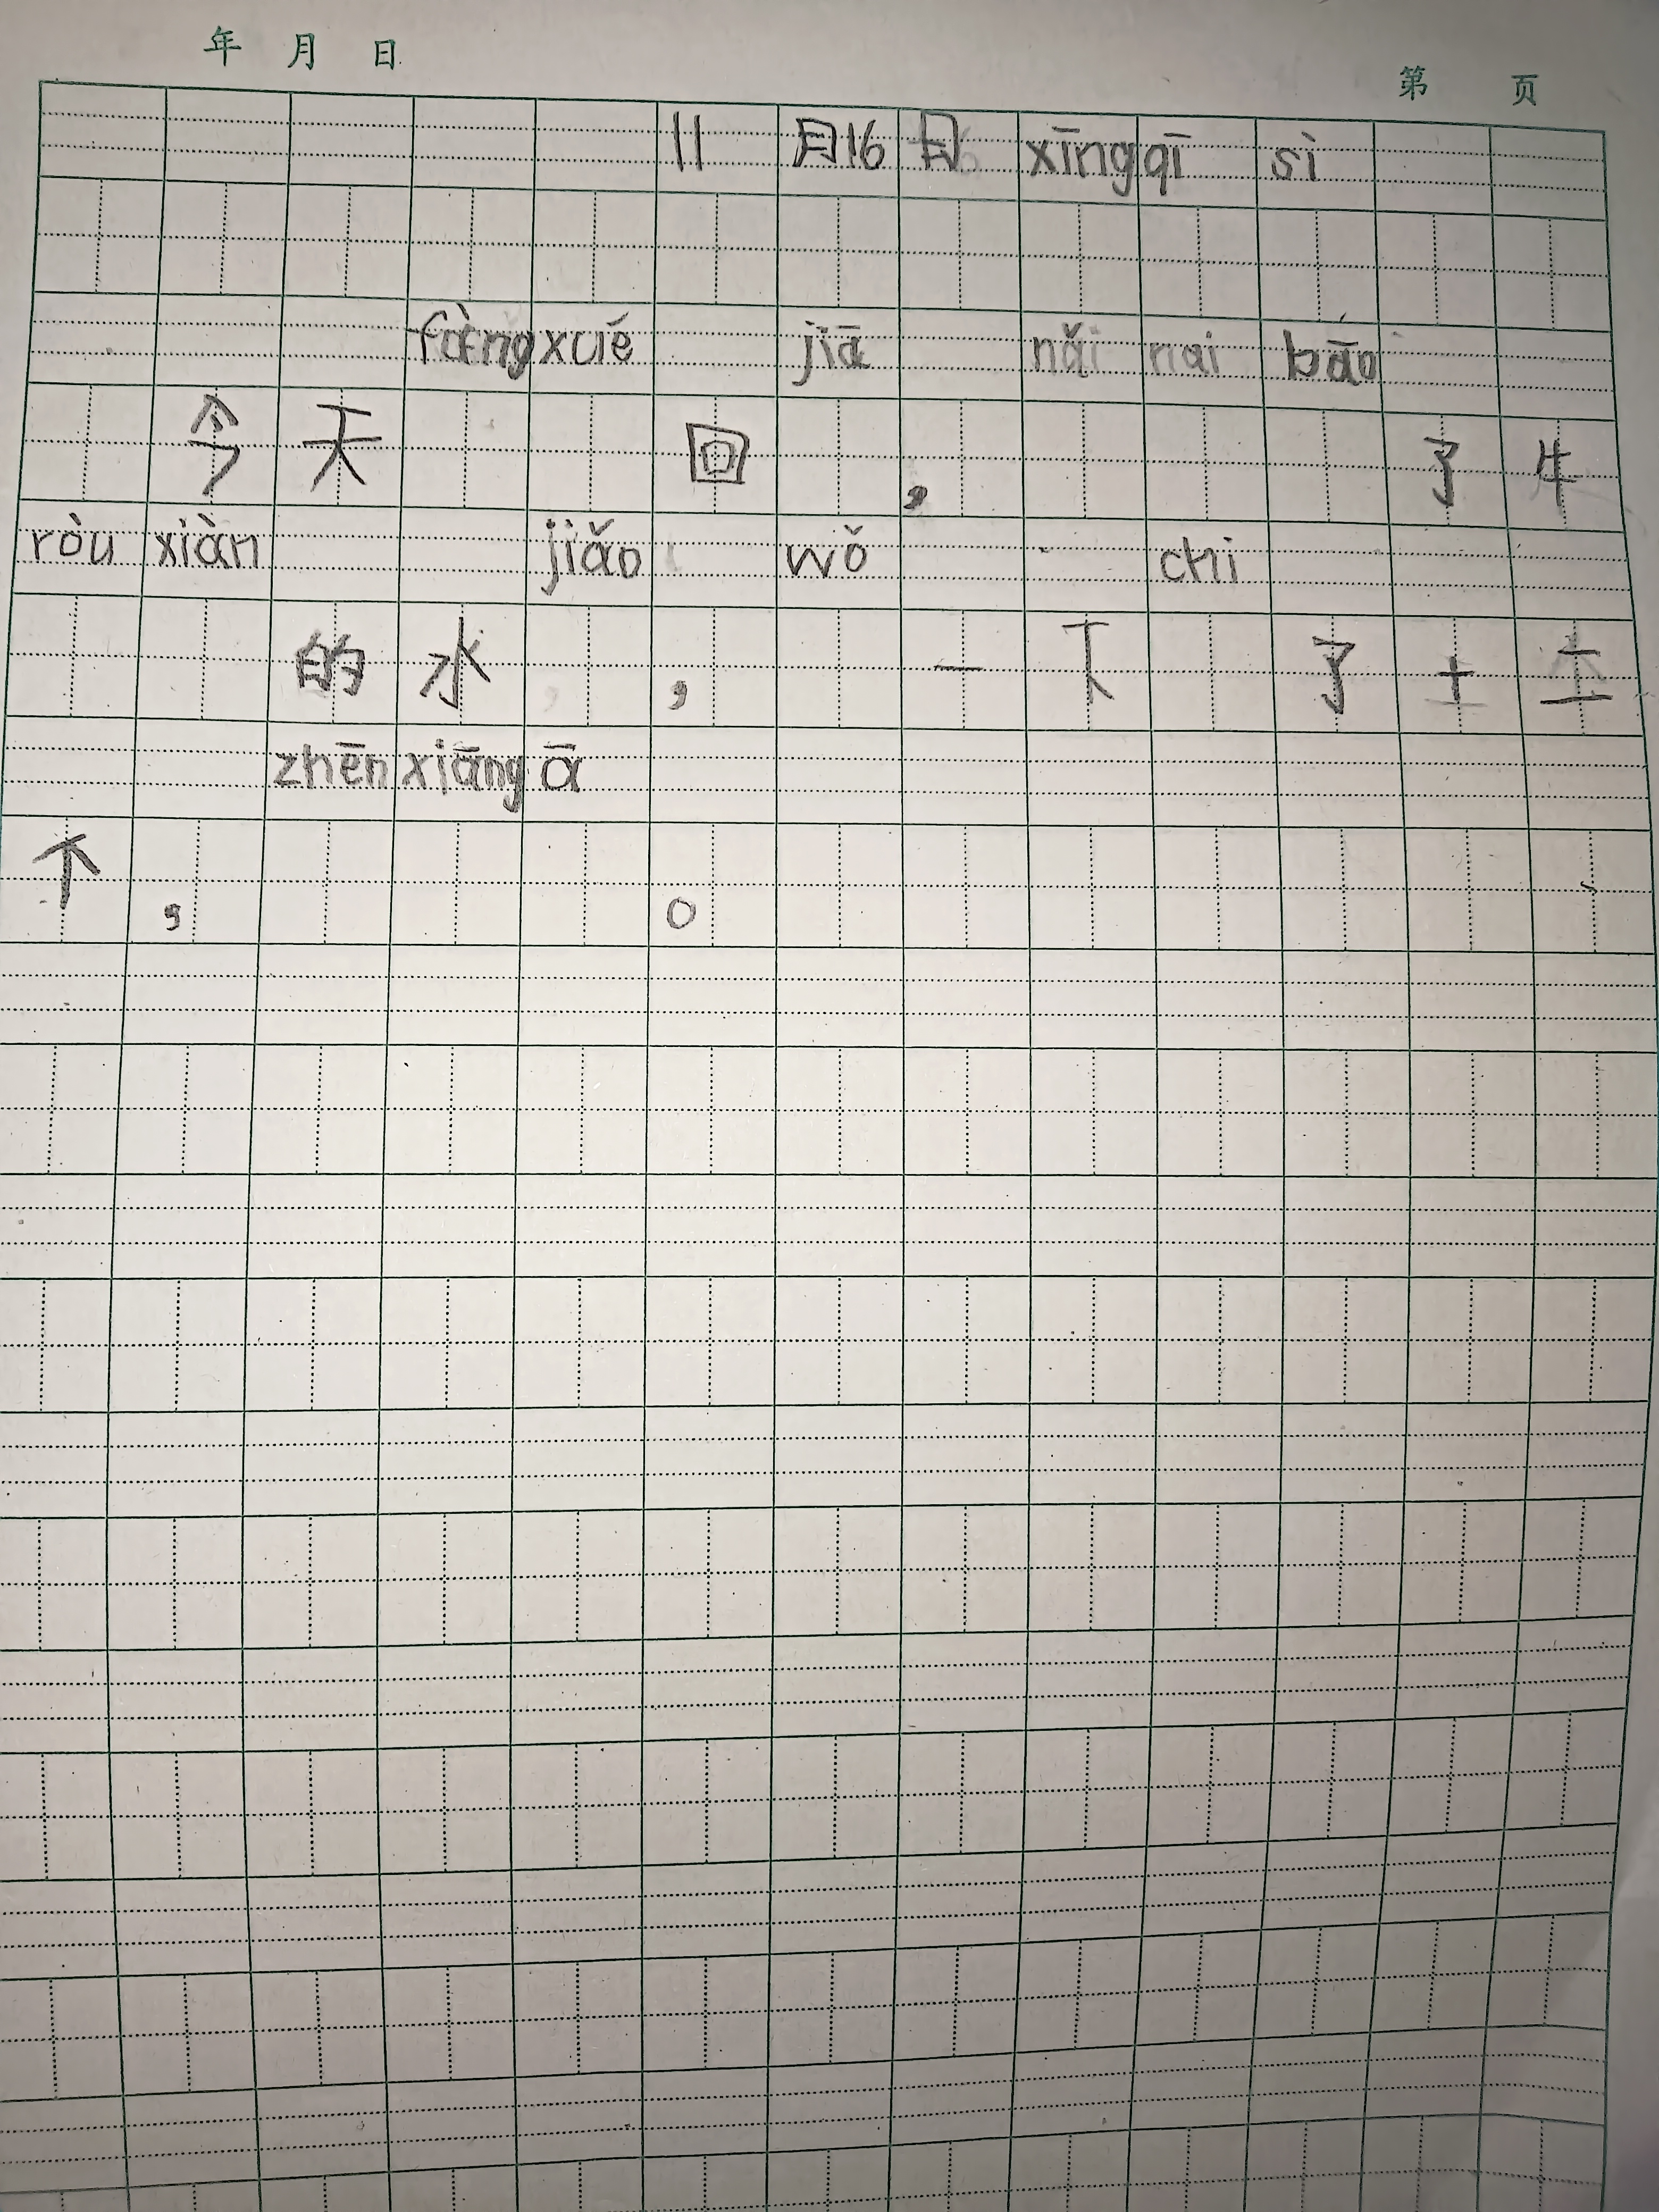 年 月 日
第 页
11 月16 日 xīngqī sì
fàngxué jiā nǎi nai bāo
今 天 回 , 了 牛
ròu xiàn jiǎo wǒ chi
的 水 , 一 下 了 十
个 ,
zhēn xiāng ā
。